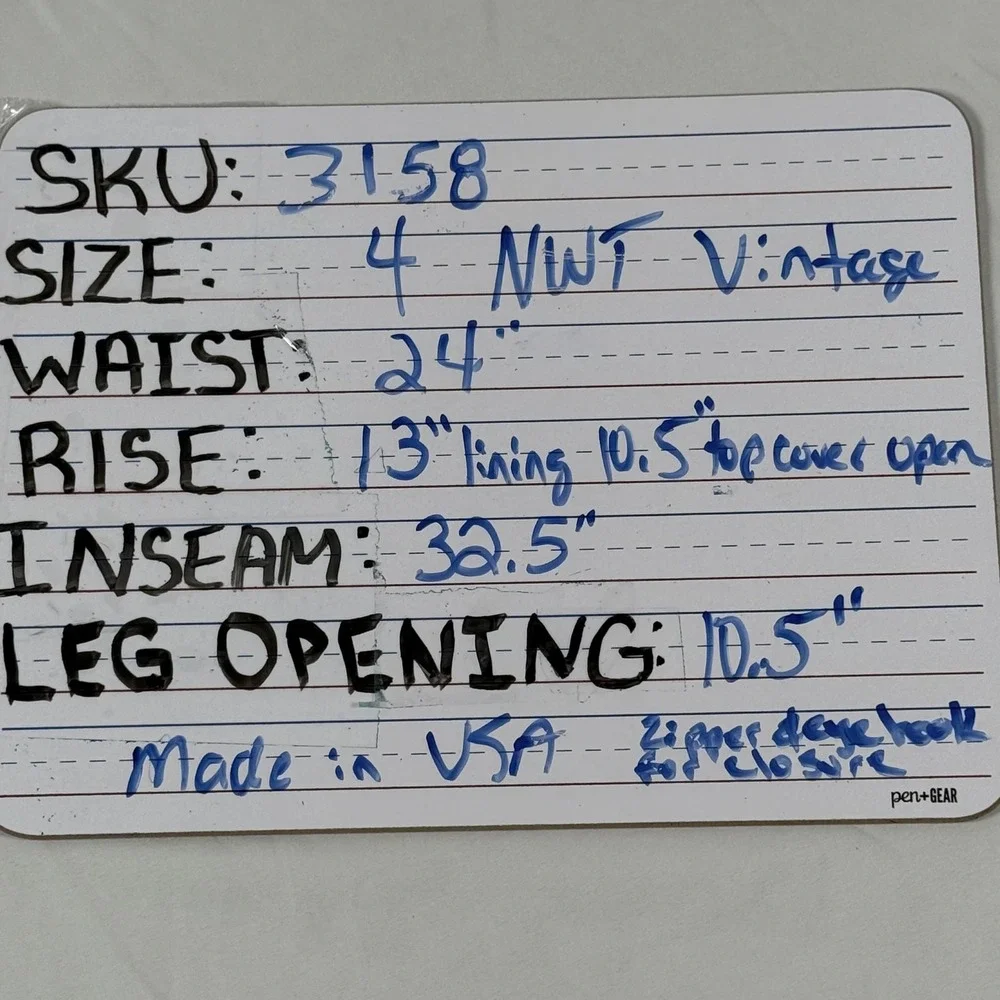 SKU: 3158
SIZE: 4 NWT Vintage
WAIST: 24"
RISE: 13" lining 10.5" top cover open
INSEAM: 32.5"
LEG OPENING: 10.5"
Made in USA
Zipper & eye hook
for closure
pen+GEAR